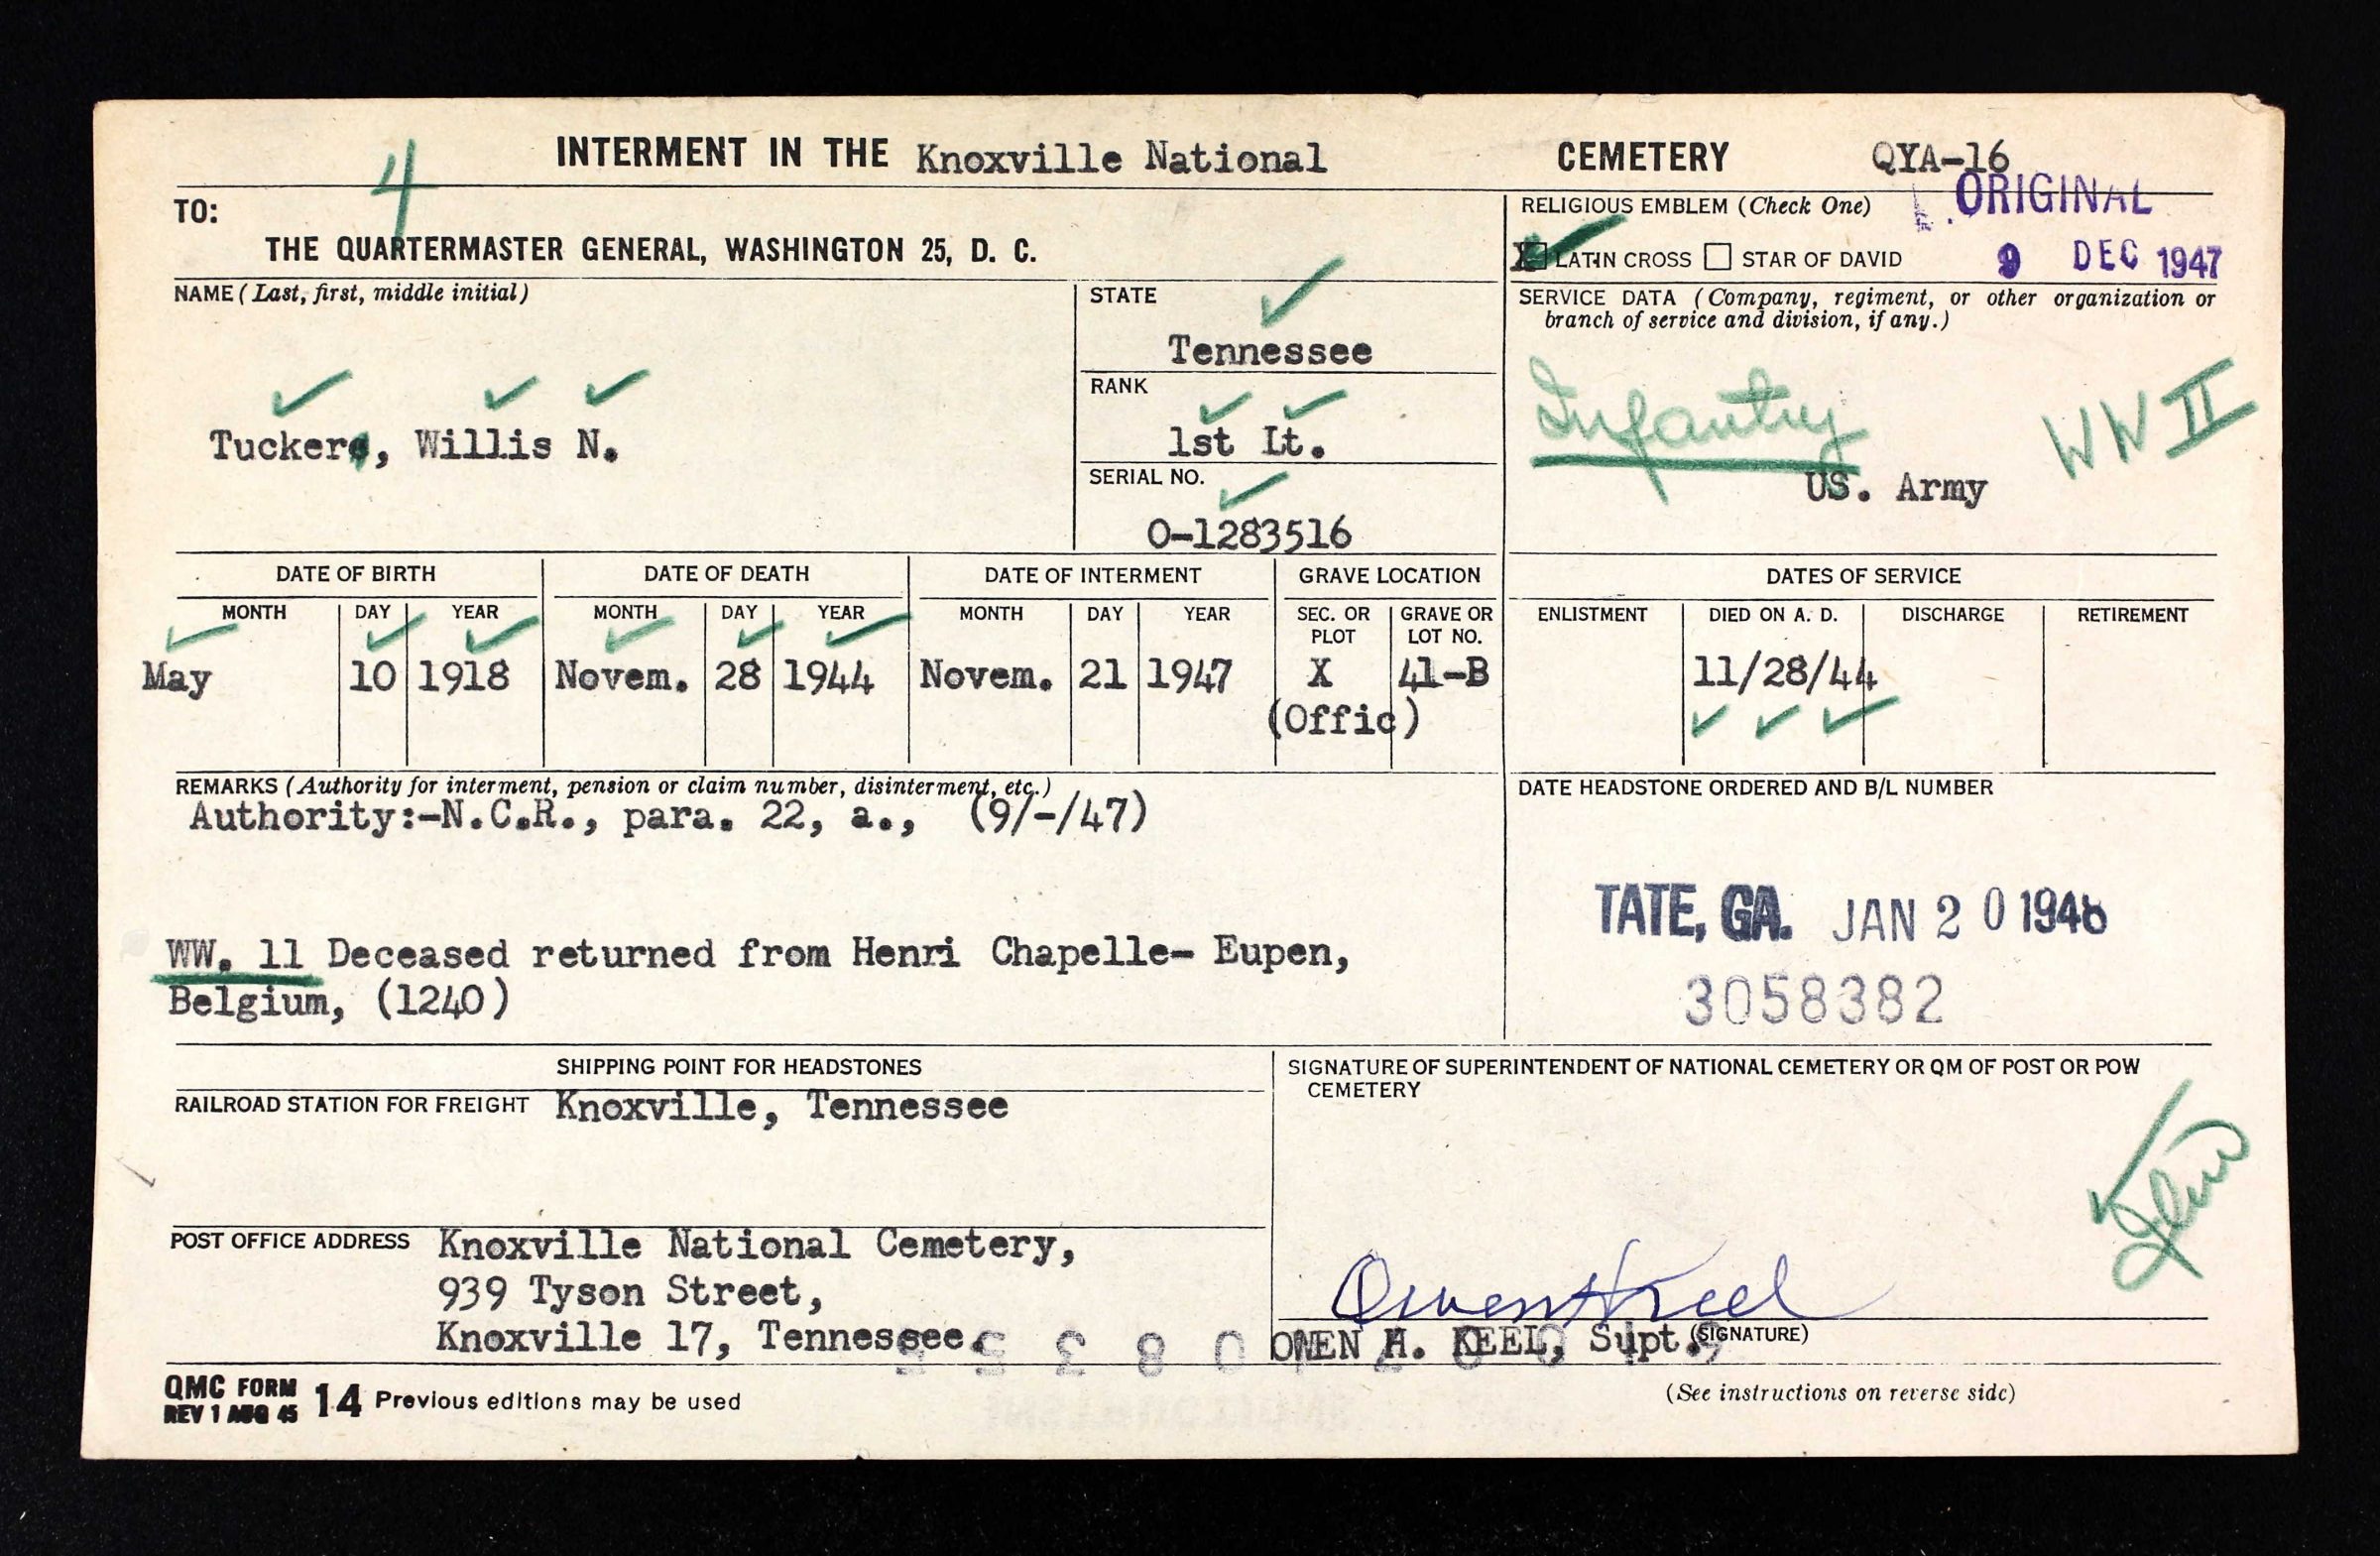 INTERMENT IN THE Knoxville National CEMETERY QYA-16
4
ORIGINAL
9 DEC 1947
TO:
THE QUARTERMASTER GENERAL, WASHINGTON 25, D. C.
RELIGIOUS EMBLEM (Check One)
X LATIN CROSS STAR OF DAVID
NAME (Last, first, middle initial)
Tucker, Willis N.
STATE
Tennessee
RANK
1st Lt.
SERIAL NO.
O-1283516
SERVICE DATA (Company, regiment, or other organization or
branch of service and division, if any.)
Infantry WW II
US. Army
DATE OF BIRTH DATE OF DEATH DATE OF INTERMENT GRAVE LOCATION DATES OF SERVICE
MONTH DAY YEAR MONTH DAY YEAR MONTH DAY YEAR SEC. OR PLOT GRAVE OR LOT NO. ENLISTMENT DIED ON A. D. DISCHARGE RETIREMENT
May 10 1918 Novem. 28 1944 Novem. 21 1947 X 41-B 11/28/44
(Offic)
REMARKS (Authority for interment, pension or claim number, disinterment, etc.)
Authority:-N.C.R., para. 22, a., (9/-/47)
WW. 11 Deceased returned from Henri Chapelle- Eupen,
Belgium, (1240)
DATE HEADSTONE ORDERED AND B/L NUMBER
TATE, GA. JAN 20 1948
3058382
SHIPPING POINT FOR HEADSTONES
RAILROAD STATION FOR FREIGHT Knoxville, Tennessee
POST OFFICE ADDRESS Knoxville National Cemetery,
939 Tyson Street,
Knoxville 17, Tennessee.
SIGNATURE OF SUPERINTENDENT OF NATIONAL CEMETERY OR QM OF POST OR POW
CEMETERY
Owen H Keel
OWEN H. KEEL, Supt. (SIGNATURE)
QMC FORM 14 Previous editions may be used
REV 1 AUG 45
(See instructions on reverse side)